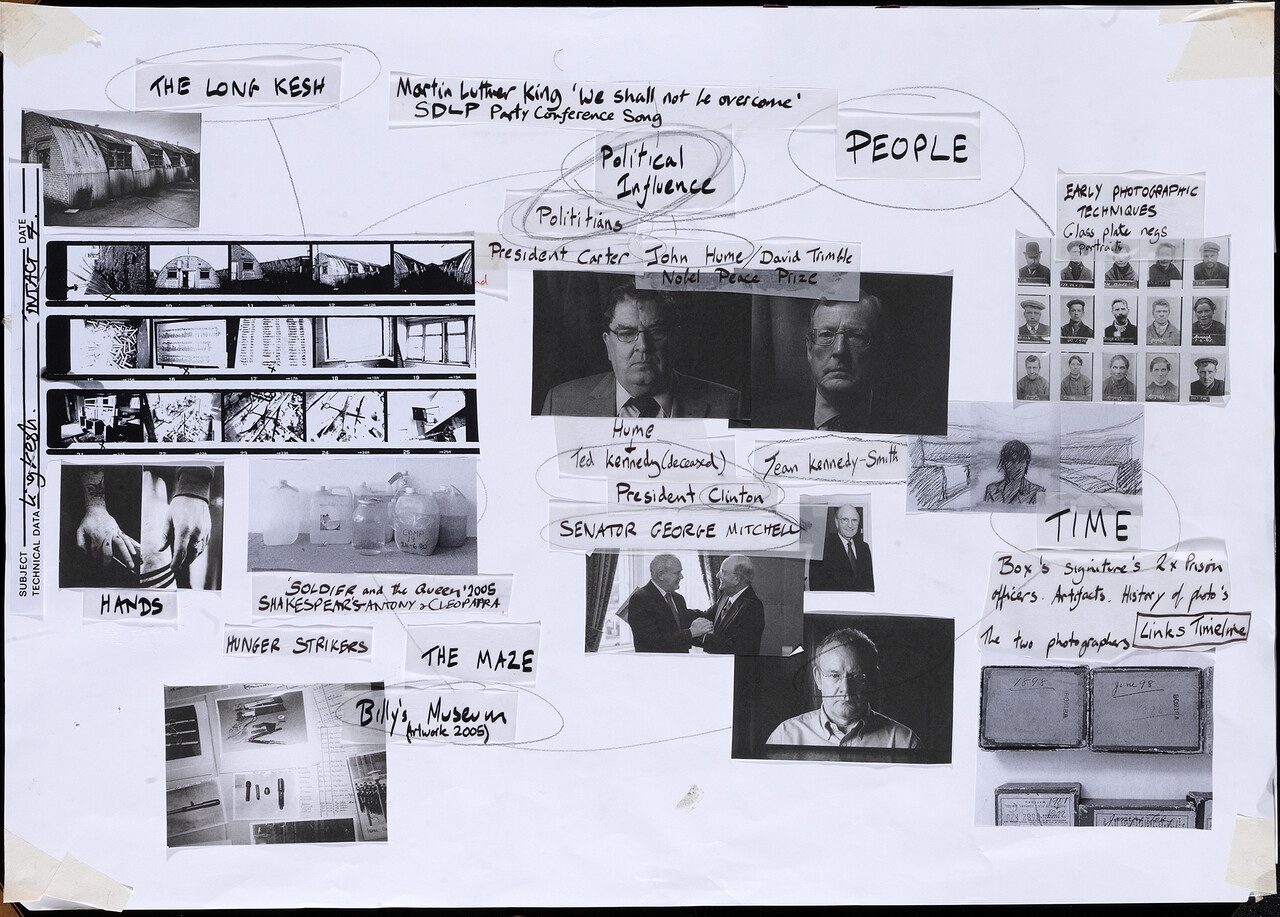 THE LONG KESH
Martin Luther King 'We shall not be overcome'
SDLP Party Conference Song
PEOPLE
Political
Influence
Polititians
President Carter John Hume/David Trimble
Nobel Peace Prize
EARLY PHOTOGRAPHIC
TECHNIQUES
Glass plate negs
portraits
SUBJECT Longkesh. INTACT DATE
TECHNICAL DATA
Hume
Ted Kennedy (deceased)
Jean Kennedy-Smith
President Clinton
SENATOR GEORGE MITCHELL
TIME
Box's signature's 2x Prison
officers. Artifacts. History of photo's
The two photographers Links Timeline
HANDS
'SOLDIER and the Queen' 2005
SHAKESPEAR'S ANTONY & CLEOPATRA
HUNGER STRIKERS
THE MAZE
Billy's Museum
(Artwork 2005)
1898
June 98